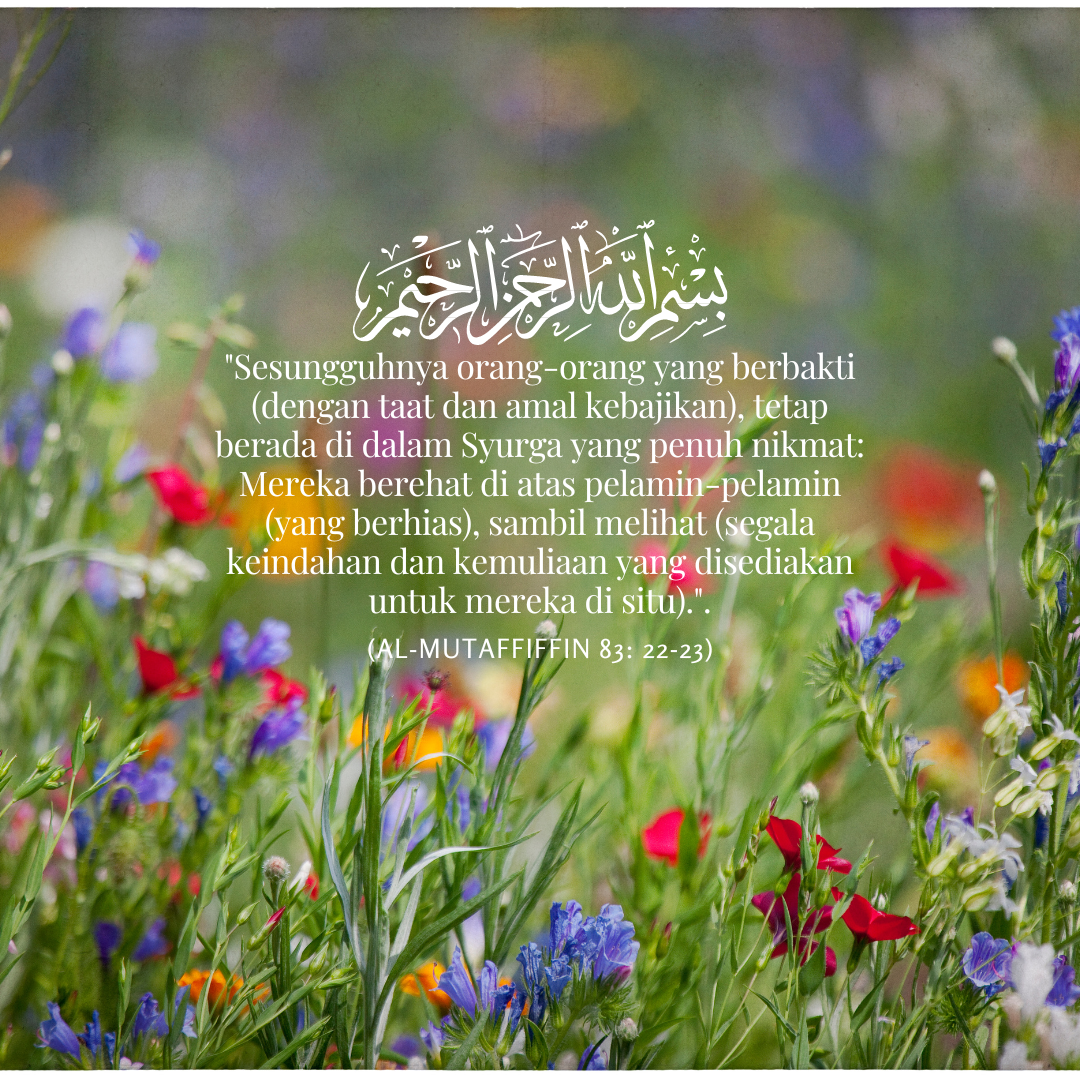 بِسْمِ ٱللَّهِ ٱلرَّحْمَٰنِ ٱلرَّحِيمِ
"Sesungguhnya orang-orang yang berbakti
(dengan taat dan amal kebajikan), tetap
berada di dalam Syurga yang penuh nikmat:
Mereka berehat di atas pelamin-pelamin
(yang berhias), sambil melihat (segala
keindahan dan kemuliaan yang disediakan
untuk mereka di situ).".
(AL-MUTAFFIFFIN 83: 22-23)